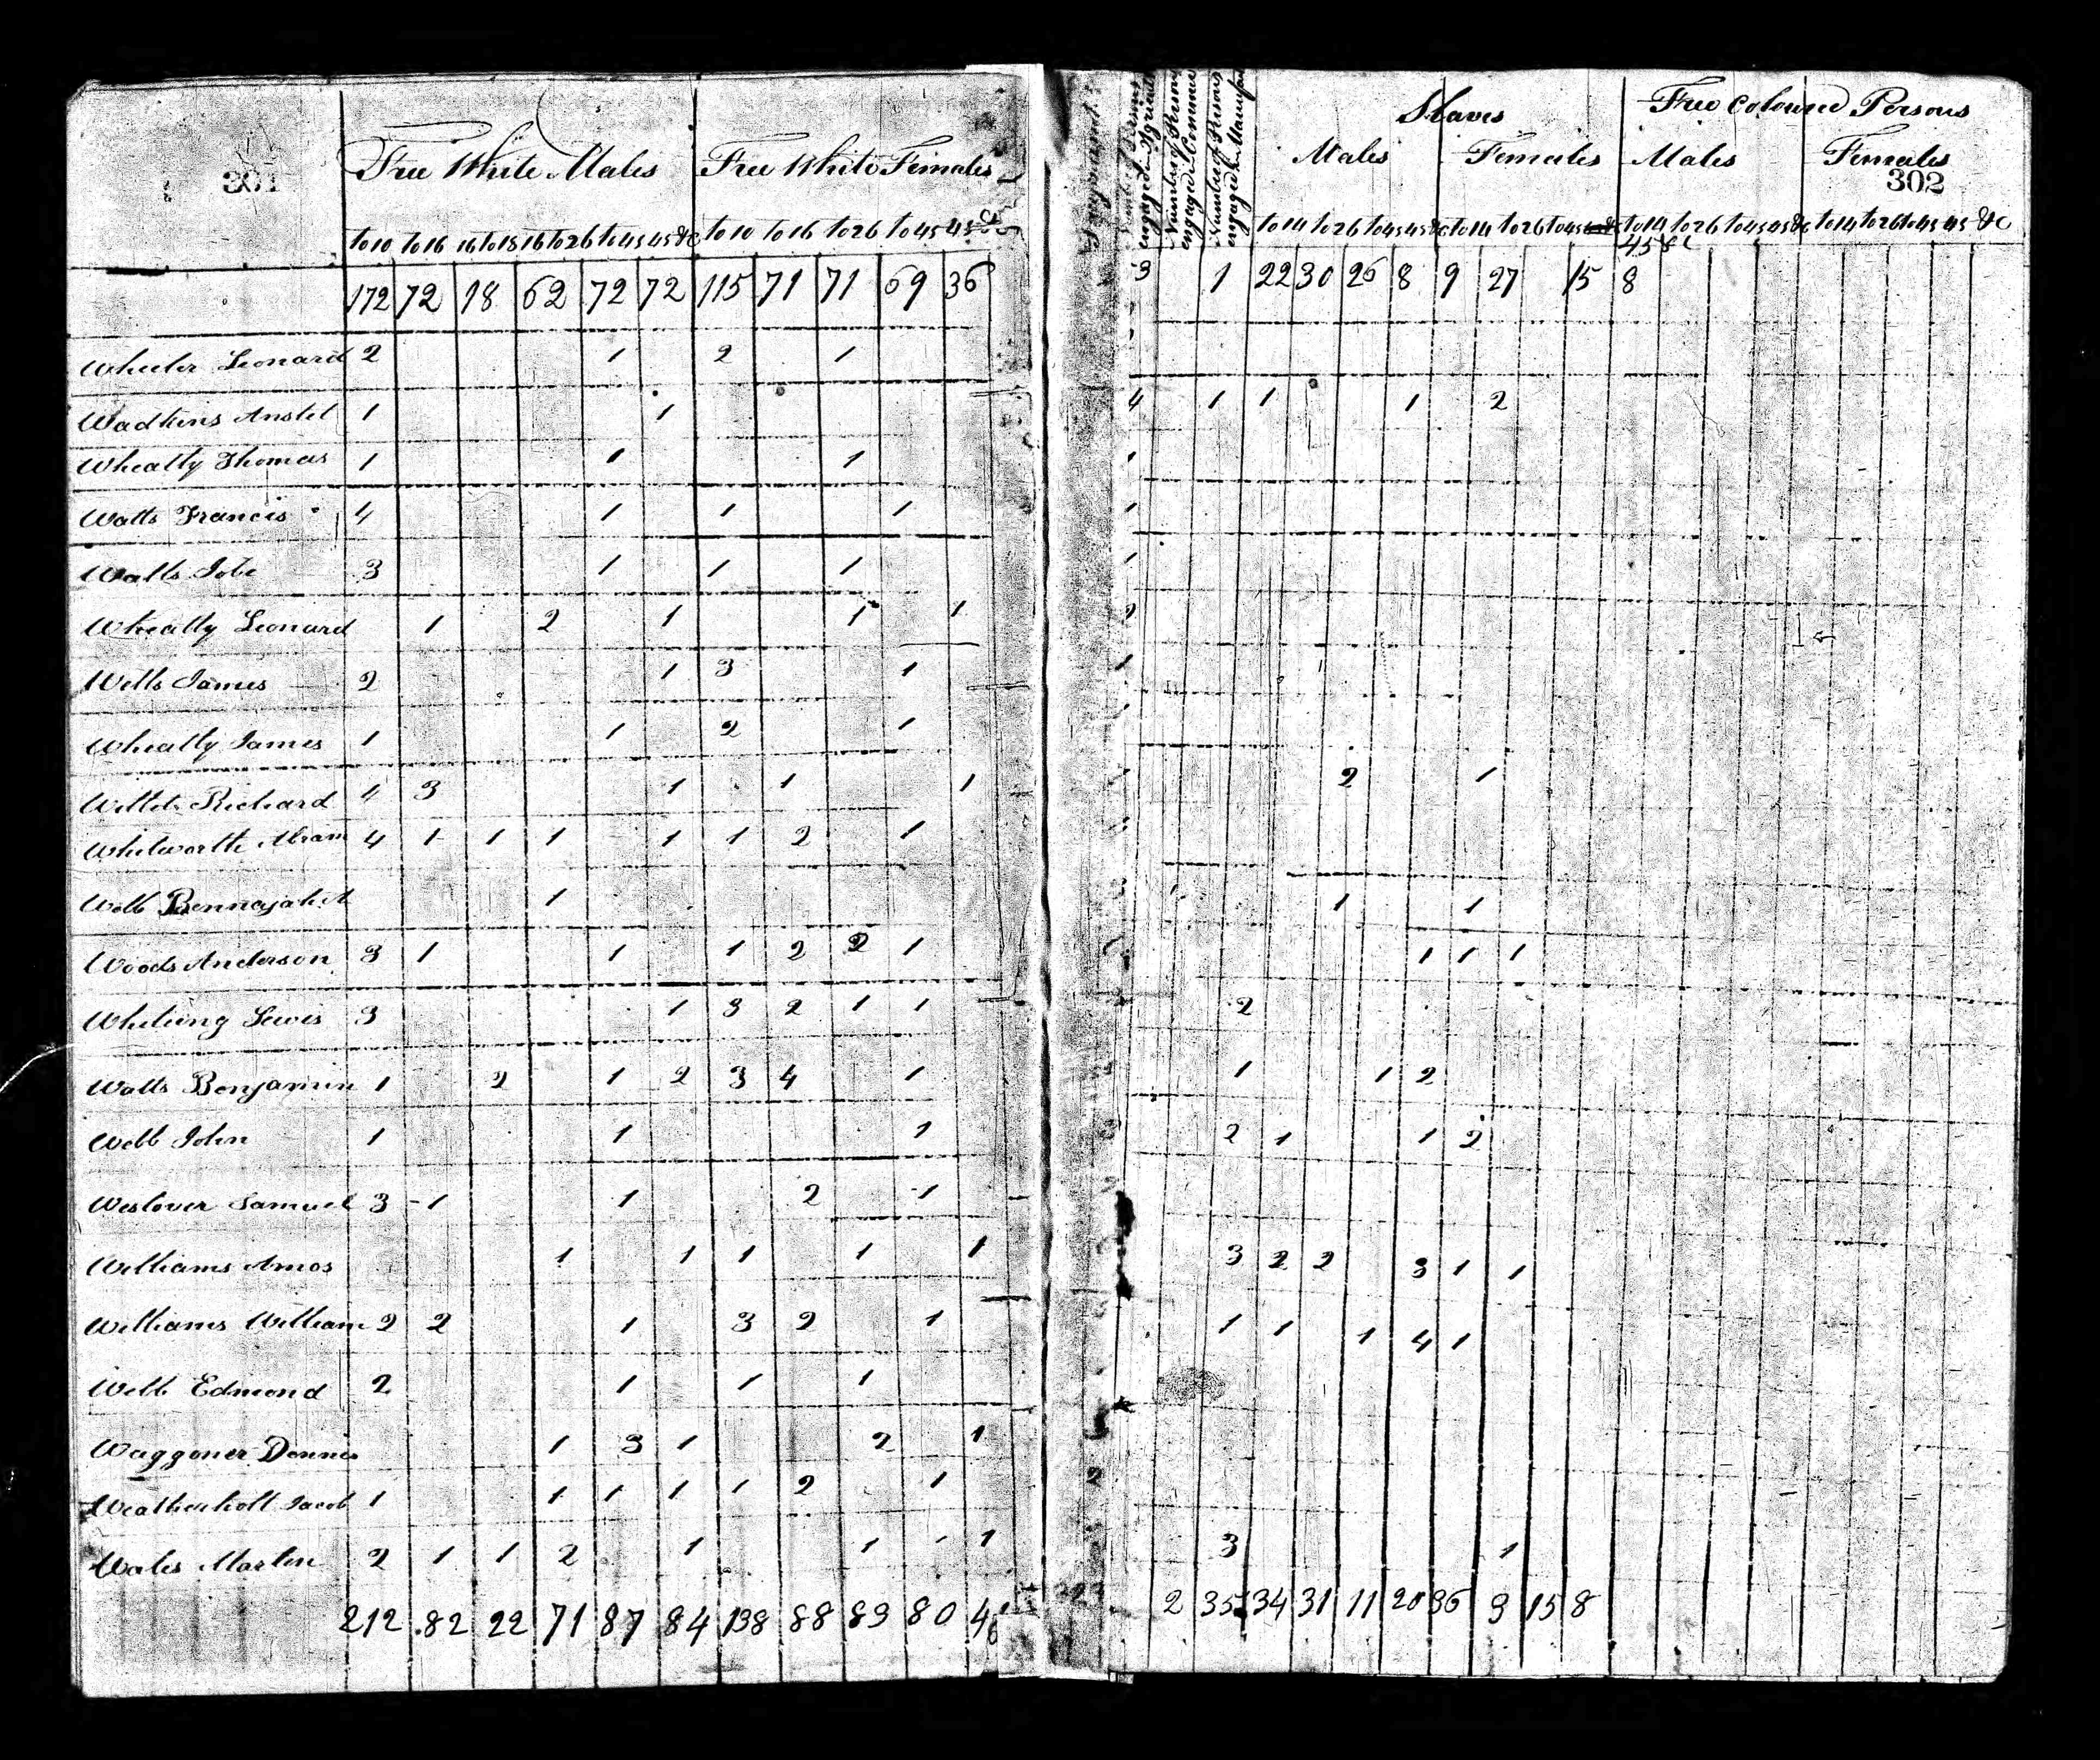 301
Free White Males Free White Females
to 10 to 16 16 to 18 16 to 26 to 45 45 &c to 10 to 16 to 26 to 45 45 &c
172 72 18 62 72 72 115 71 71 69 36
Wheeler Leonard 2 1 2 1
Wadkins Anstel 1 1
Wheatly Thomas 1 1 1
Watts Francis 4 1 1 1
Watts Jobe 3 1 1 1
Wheatly Leonard 1 2 1 1 1
Wells James 2 1 3 1
Wheatly James 1 1 2 1
Willett Richard 4 3 1 1 1
Whitworth Abram 4 1 1 1 1 1 2 1
Webb Bennajah A 1
Woods Anderson 3 1 1 1 2 2 1
Whiteing Lewis 3 1 3 2 1 1
Watts Benjamin 1 2 1 2 3 4 1
Webb John 1 1 1
Weslover Samuel 3 1 1 2 1
Williams Amos 1 1 1 1 1
Williams William 2 2 1 3 2 1
Webb Edmond 2 1 1 1
Waggoner Dennis 1 3 1 2 1
Weatherholt Jacob 1 1 1 1 1 2 1
Wales Martin 2 1 1 2 1 1 1
212 82 22 71 87 84 138 88 89 80
engaged in
Number of Persons
Number of Persons
Slaves Free Coloured Persons
Males Females Males Females
302
to 14 to 26 to 45 45 &c to 14 to 26 to 45 to 14 to 26 to 45 45 &c to 14 to 26 to 45 45 &c
45 &c
3 1 22 30 26 8 9 27 15 8
4 1 1 1 2
1
1
1
2
1
2 1
1 1
1 1 1
2
1 1 2
2 1 1 2
3 2 2 3 1 1
1 1 1 4 1
2
3 1
2 35 34 31 11 20 36 9 15 8